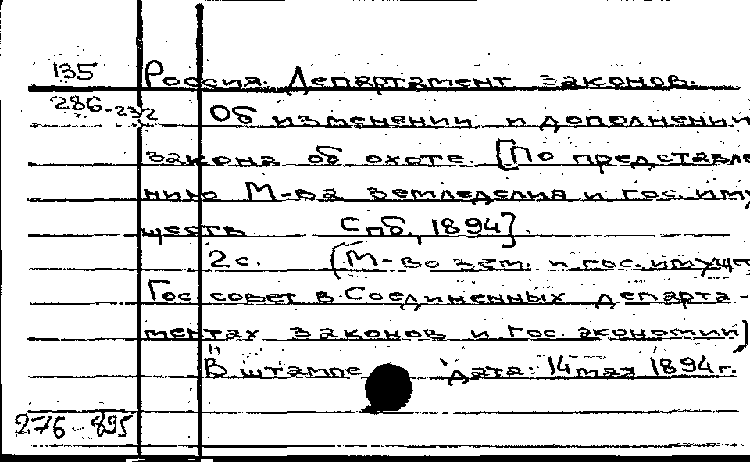 135 Россия. Департамент законов.
286-232 Об изменении и дополнении
закона об охоте. [По представле
нию М-ва земледелия и гос. иму
ществ Спб., 1894].
2с. (М-во зем. и гос. имущест
Гос совет в Соединенных департа-
ментах законов и гос. экономии)
В штампе дата: 14 мая 1894 г.
276-895